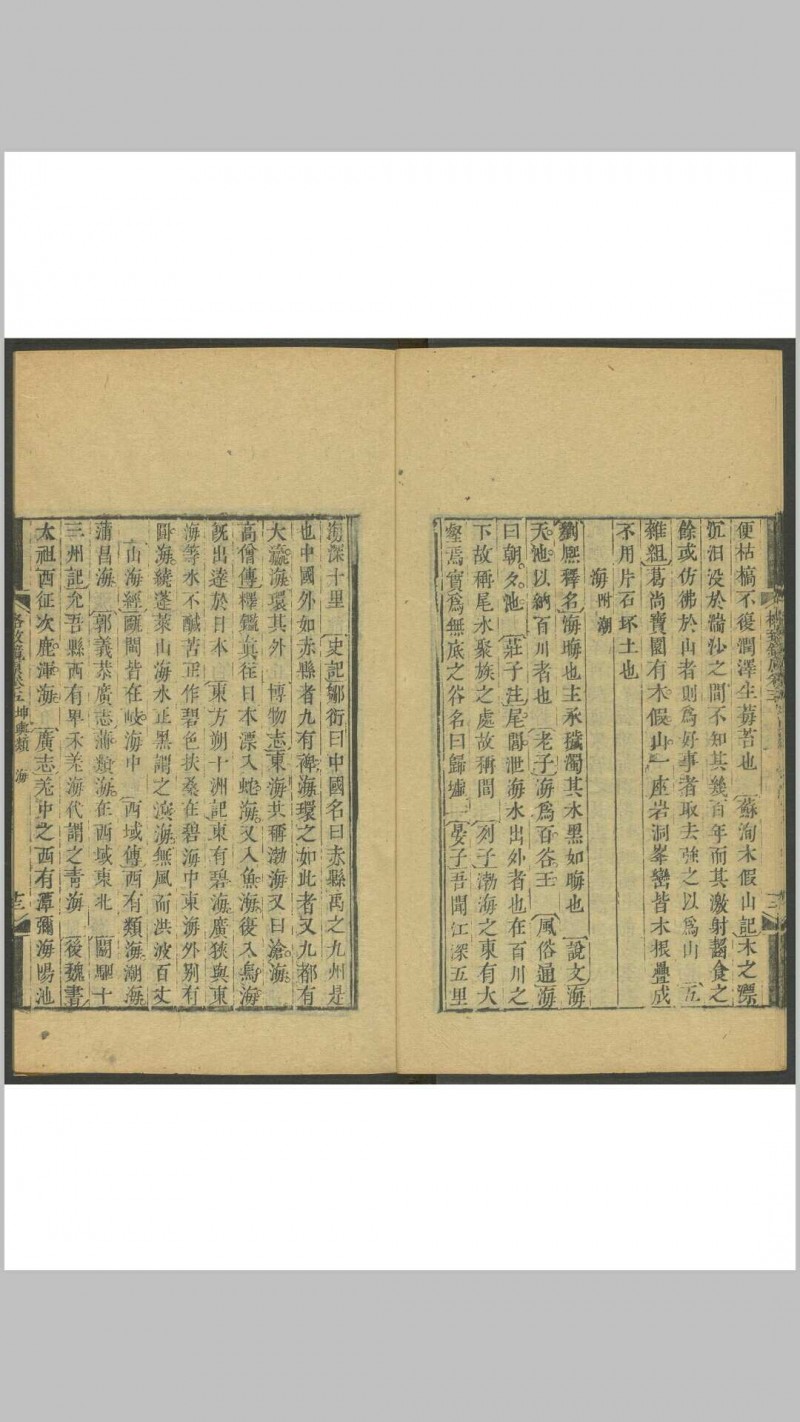 便枯槁不復潤澤生莓苔也　蘇洵木假山記木之漂
沉汨没於湍沙之間不知其幾百年而其激射齧食之
餘或仿彿於山者則爲好事者取去強之以爲山　五
雜組葛尚寶園有木假山一座岩洞峯巒皆木根疊成
不用片石坏土也
海附潮
劉熙釋名海晦也主承穢濁其水黑如晦也　說文海
天池以納百川者也　老子海爲百谷王　風俗通海
曰朝夕池　莊子注尾閭泄海水出外者也在百川之
下故稱尾水聚族之處故稱閭　列子渤海之東有大
壑焉實爲無底之谷名曰歸墟　晏子吾聞江深五里
海深十里　史記鄒衍曰中國名曰赤縣禹之九州是
也中國外如赤縣者九有裨海環之如此者又九都有
大瀛海環其外　博物志東海其稱渤海又曰滄海
高僧傳釋鑑真往日本漂入蛇海又入魚海後入鳥海
旣出達於日本　東方朔十洲記東有碧海廣狹與東
海等水不鹹苦正作碧色扶桑在碧海中東海外別有
圓海繞蓬萊山海水正黑謂之溟海無風而洪波百丈
山海經匾閭皆在岐海中　西域傳西有類海潮海
蒲昌海　郭義恭廣志蒲類海在西域東北　闞駰十
三州記允吾縣西有卑禾羌海代謂之青海　後魏書
太祖西征次鹿渾海　廣志羌中之西有潭彌海陽池
格致鏡原卷五坤輿類　海　十三